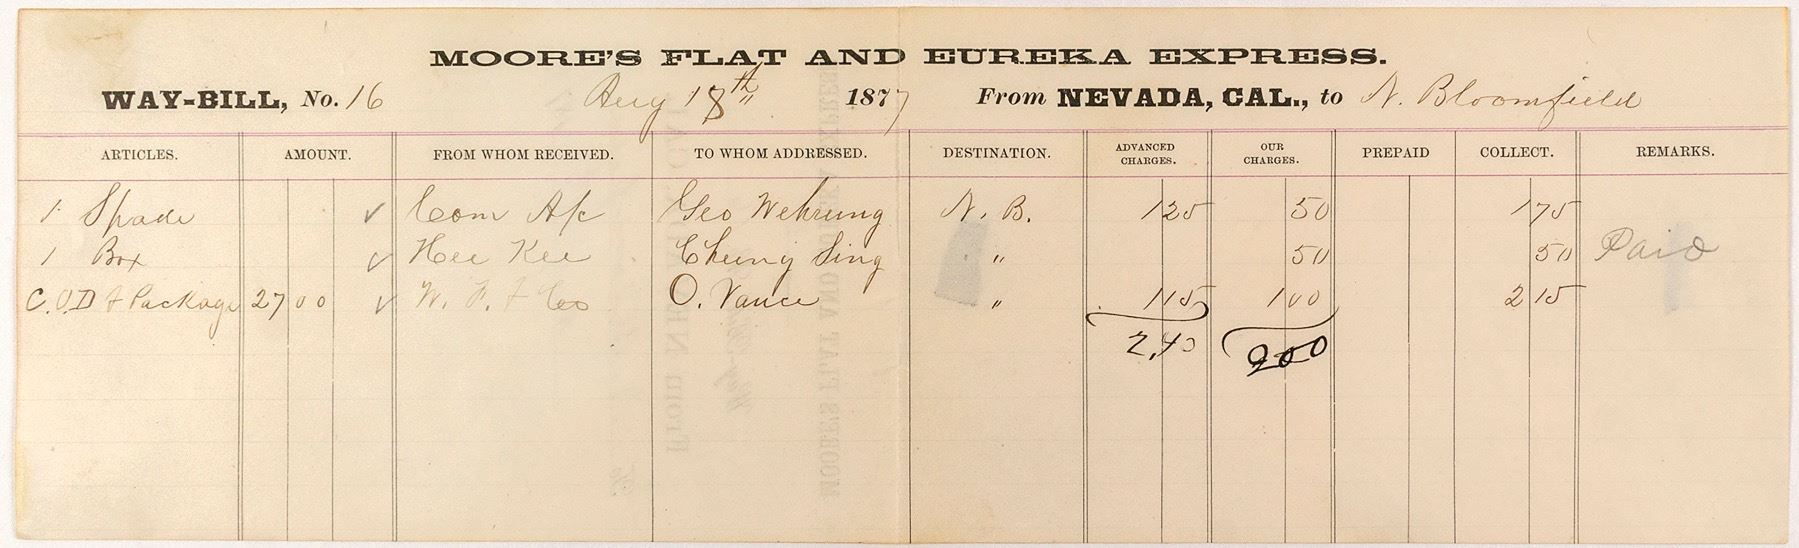 MOORE'S FLAT AND EUREKA EXPRESS.
WAY-BILL, No. 16 Aug 18th 1877 From NEVADA, CAL., to N. Bloomfield
ARTICLES. AMOUNT. FROM WHOM RECEIVED. TO WHOM ADDRESSED. DESTINATION. ADVANCED CHARGES. OUR CHARGES. PREPAID COLLECT. REMARKS.
1 Spade ✓ Com A/c Geo Wehrung N. B. 125 50 175
1 Box ✓ Hee Kee Cheung Sing " 50 50 Paid
C.O.D & Package 27 00 ✓ W. F. & Co O. Vance " 115 100 215
2,40 200